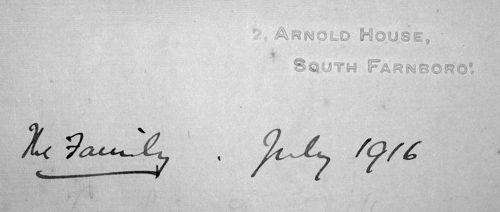 2, ARNOLD HOUSE,
SOUTH FARNBORO'.
The Family . July 1916